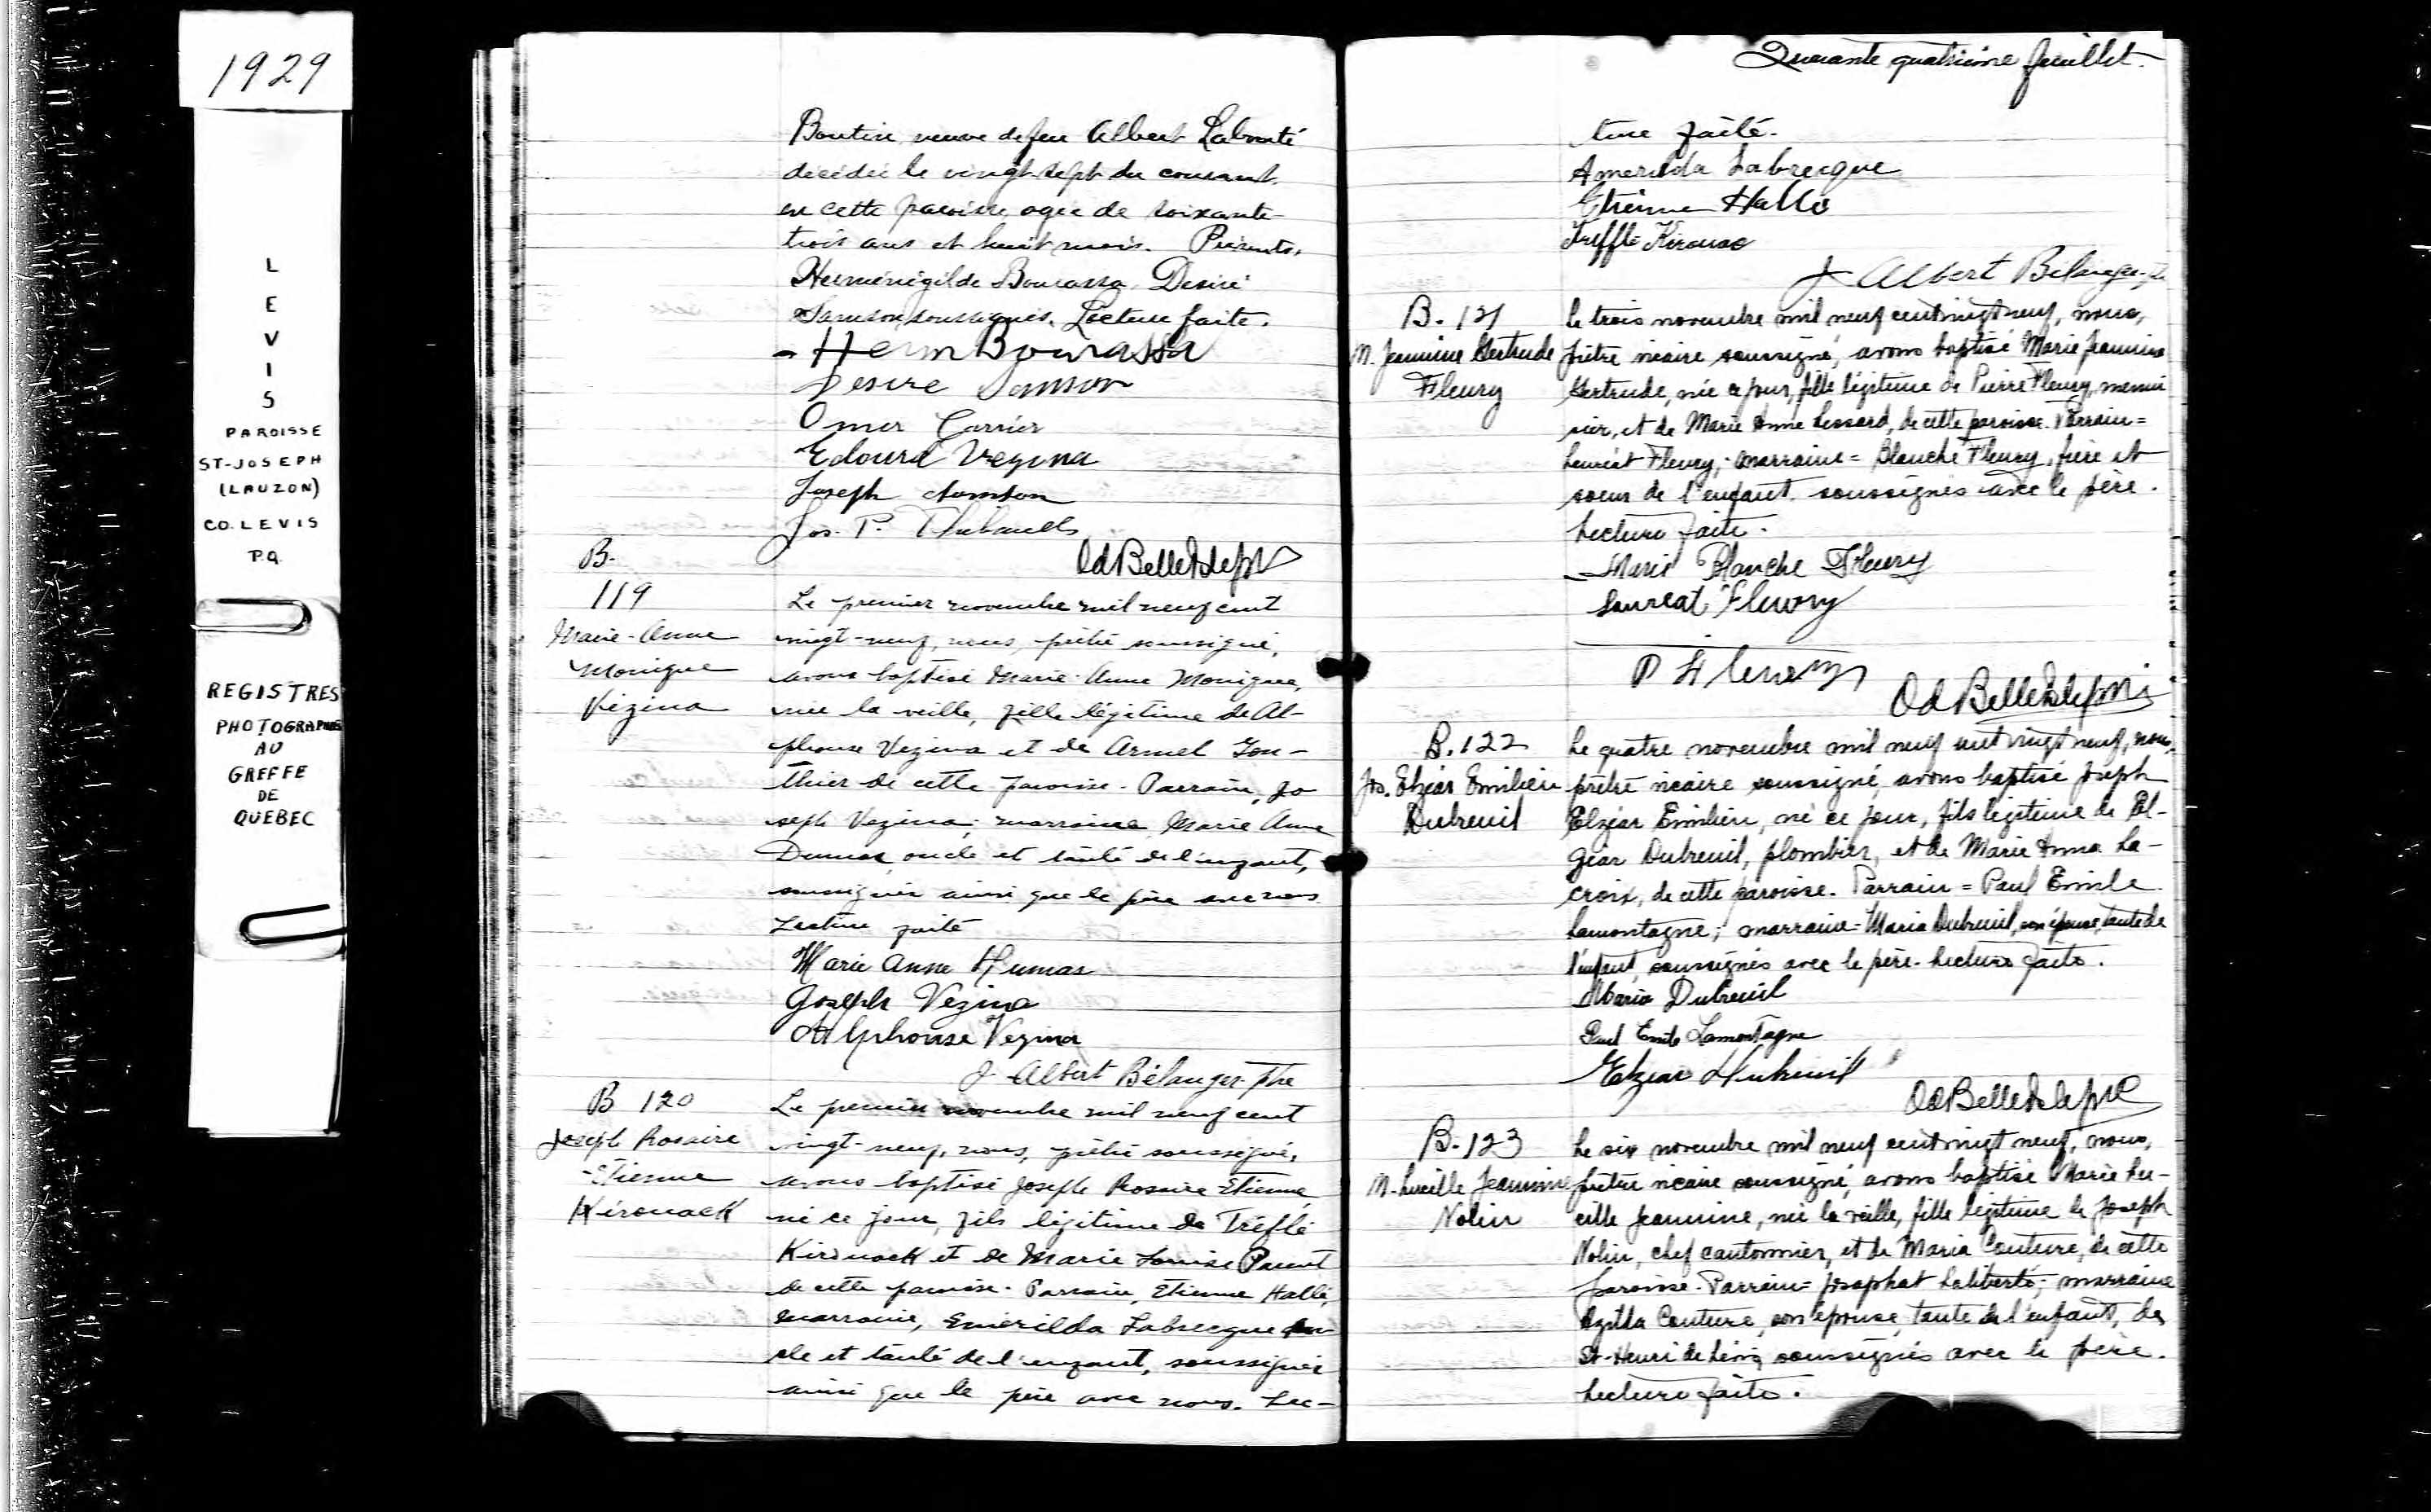 1929
L
E
V
I
S
PAROISSE
ST-JOSEPH
(LAUZON)
CO. LEVIS
P.Q.
REGISTRES
PHOTOGRAPHIES
AU
GREFFE
DE
QUEBEC
Boutin veuve de feu Albert Labonté
décédée le vingt-sept du courant
en cette paroisse agée de soixante-
trois ans et huit mois. Présents,
Herménégilde Bourassa, Desiré
Samson soussignés. Lecture faite.
Herm Bourassa
Desire Samson
Omer Carrier
Edouard Vezina
Joseph Samson
Jos. P. Thibault
Od Belleisle ptre
B.
119
Marie-Anne
Monique
Vézina
Le premier novembre mil neuf cent
vingt-neuf, nous, prêtre soussigné,
avons baptisé Marie-Anne Monique,
née la veille, fille légitime de Al-
phonse Vezina et de Armel Gon-
thier de cette paroisse. Parrain, Jo
seph Vezina; marraine Marie Anne
Dumas, oncle et tante de l'enfant,
soussignés ainsi que le père avec nous
Lecture faite
Marie Anne Dumas
Joseph Vezina
Alphonse Vezina
J. Albert Bélanger ptre
B 120
Joseph Rosaire
Etienne
Kirouack
Le premier novembre mil neuf cent
vingt-neuf, nous, prêtre soussigné,
avons baptisé Joseph Rosaire Etienne,
né ce jour, fils légitime de Tréflé
Kirouack et de Marie Louise Parent
de cette paroisse. Parrain, Etienne Hallé,
marraine, Emerilda Labrecque on
cle et tante de l'enfant, soussignés
ainsi que le père avec nous. Lec-
Quarante quatrième feuillet.
ture faite.
Amerilda Labrecque
Etienne Hallé
Treffle Kirouac
J Albert Bélanger ptre
B. 121
M. Jeannine Gertrude
Fleury
Le trois novembre mil neuf cent vingt neuf, nous,
prêtre vicaire soussigné, avons baptisé Marie Jeannine
Gertrude, née ce jour, fille légitime de Pierre Fleury, menui
sier, et de Marie Anne Lessard, de cette paroisse. Parrain =
Lauréat Fleury; marraine = Blanche Fleury, frère et
soeur de l'enfant soussignés avec le père.
Lecture faite.
Marie Blanche Fleury
Laureat Fleury
P Fleury
Od Belleisle ptre
B. 122
Jos. Elzéar Emilien
Dubreuil
Le quatre novembre mil neuf cent vingt neuf, nous,
prêtre vicaire soussigné, avons baptisé Joseph
Elzéar Emilien, né ce jour, fils légitime de El-
zéar Dubreuil, plombier, et de Marie Anna La-
croix, de cette paroisse. Parrain = Paul Emile
Lamontagne; marraine = Maria Dubreuil, son épouse, tante de
l'enfant, soussignés avec le père. Lecture faite.
Maria Dubreuil
Paul Emile Lamontagne
Elzear Dubreuil
Od Belleisle ptre
B. 123
M. Lucille Jeannine
Nolin
Le six novembre mil neuf cent vingt neuf, nous,
prêtre vicaire soussigné, avons baptisé Marie Lu-
cille Jeannine, née la veille, fille légitime de Joseph
Nolin, chef cantonnier, et de Maria Couture, de cette
paroisse. Parrain = Josaphat Laliberté; marraine
Azilda Couture, son épouse, tante de l'enfant, de
St-Henri de Lévis soussignés avec le père.
Lecture faite.